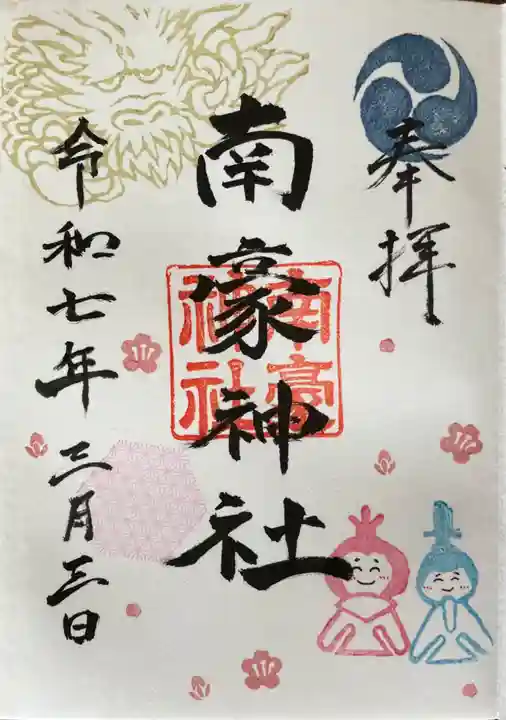 奉拝
南豪神社
令和七年 三月三日
南豪
神社